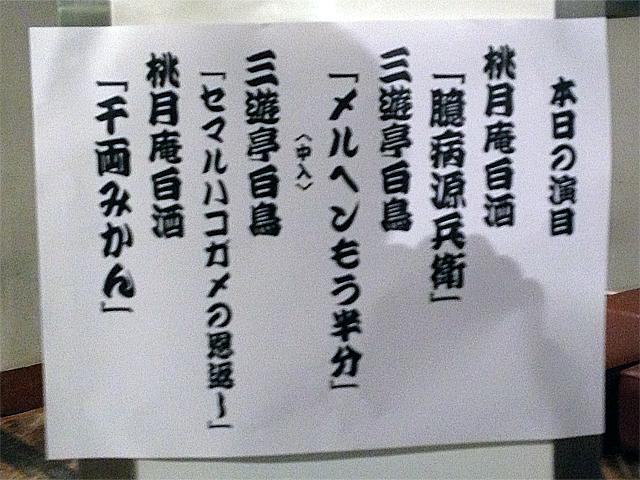 本日の演目
桃月庵白酒
「臆病源兵衛」
三遊亭白鳥
「メルヘンもう半分」
〈中入〉
三遊亭白鳥
「セマルハコガメの恩返～」
桃月庵白酒
「千両みかん」